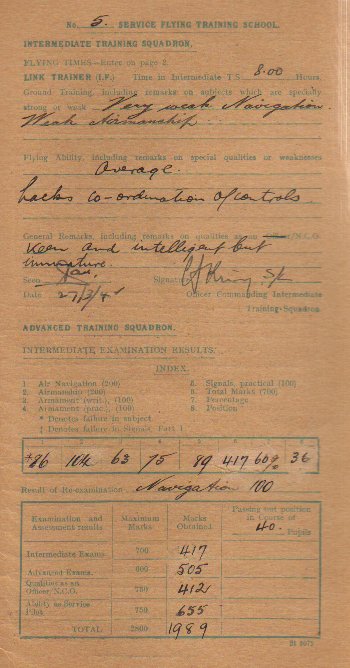 No. 5. SERVICE FLYING TRAINING SCHOOL.
INTERMEDIATE TRAINING SQUADRON.
FLYING TIMES—Enter on page 2.
LINK TRAINER (I.F.) Time in Intermediate T.S. 8.00 Hours.
Ground Training, including remarks on subjects which are specially
strong or weak Very weak Navigation.
Weak Airmanship.
Flying Ability, including remarks on special qualities or weaknesses
average.
Lacks co-ordination of controls.
General Remarks, including remarks on qualities as an Officer/N.C.O.
Keen and intelligent but
immature.
Seen Signature
Date Officer Commanding Intermediate
Training Squadron
ADVANCED TRAINING SQUADRON.
INTERMEDIATE EXAMINATION RESULTS.
INDEX.
1. Air Navigation (200) 5. Signals, practical (100)
2. Airmanship (200) 6. Total Marks (700)
3. Armament (writ.), (100) 7. Percentage
4. Armament (prac.), (100) 8. Position
* Denotes failure in subject.
† Denotes failure in Signals, Part 1.
*86 104 63 75 89 417 60% 36
Result of Re-examination Navigation 100
Examination and Assessment results. Maximum Marks. Marks Obtained. Passing out position in Course of 40. Pupils
Intermediate Exams. 700 417
Advanced Exams. 600 505
Qualities as an Officer/N.C.O. 750 412
Ability as Service Pilot. 750 655
TOTAL 2800 1989